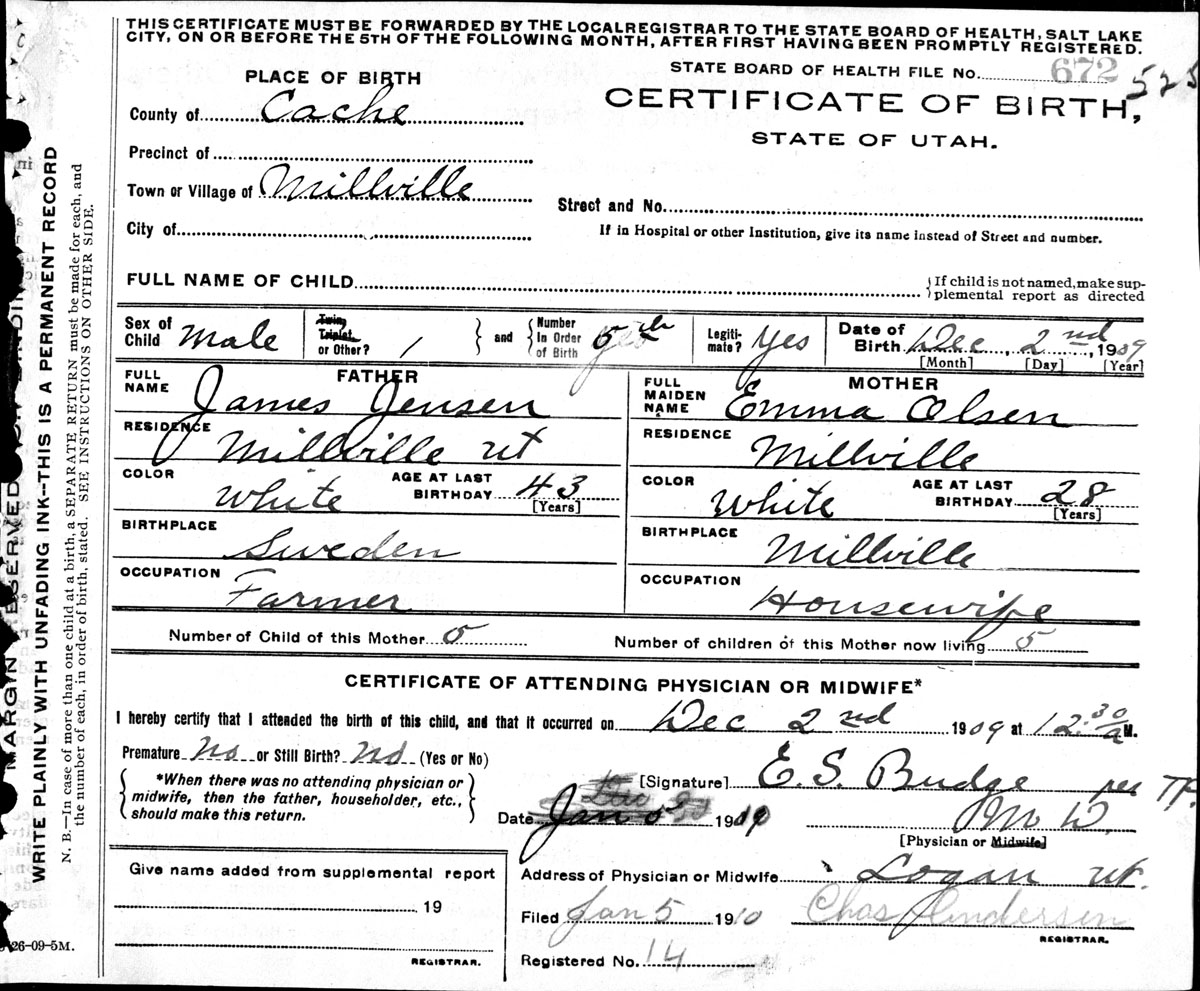 THIS CERTIFICATE MUST BE FORWARDED BY THE LOCAL REGISTRAR TO THE STATE BOARD OF HEALTH, SALT LAKE
CITY, ON OR BEFORE THE 5TH OF THE FOLLOWING MONTH, AFTER FIRST HAVING BEEN PROMPTLY REGISTERED.
STATE BOARD OF HEALTH FILE No. 672 525
PLACE OF BIRTH
CERTIFICATE OF BIRTH,
STATE OF UTAH.
County of Cache
Precinct of
Town or Village of Millville
Street and No.
City of
If in Hospital or other Institution, give its name instead of Street and number.
FULL NAME OF CHILD
If child is not named, make sup-
plemental report as directed
Sex of Child Male
Twin Triplet or Other? 1 and
Number In Order of Birth 5th
Legiti-mate? Yes
Date of Birth Dec, 2nd, 1909
[Month] [Day] [Year]
FATHER
FULL NAME James Jensen
RESIDENCE Millville Ut
COLOR White AGE AT LAST BIRTHDAY 43
[Years]
BIRTHPLACE Sweden
OCCUPATION Farmer
MOTHER
FULL MAIDEN NAME Emma Olsen
RESIDENCE Millville
COLOR White AGE AT LAST BIRTHDAY 28
[Years]
BIRTHPLACE Millville
OCCUPATION Housewife
Number of Child of this Mother 5 Number of children of this Mother now living 5
CERTIFICATE OF ATTENDING PHYSICIAN OR MIDWIFE*
I hereby certify that I attended the birth of this child, and that it occurred on Dec 2nd 1909 at 12:30 a M.
Premature No or Still Birth? No (Yes or No)
*When there was no attending physician or
midwife, then the father, householder, etc.,
should make this return.
[Signature] E. S. Budge per
M D.
Date Jan 5 1909
[Physician or Midwife]
Address of Physician or Midwife Logan Ut.
Filed Jan 5 1910 Chas Anderson
REGISTRAR.
Registered No. 14
Give name added from supplemental report
19
REGISTRAR.
26-09-5M.
MARGIN RESERVED
WRITE PLAINLY WITH UNFADING INK--THIS IS A PERMANENT RECORD
N. B.—In case of more than one child at a birth, a SEPARATE RETURN must be made for each, and
the number of each, in order of birth, stated. SEE INSTRUCTIONS ON OTHER SIDE.